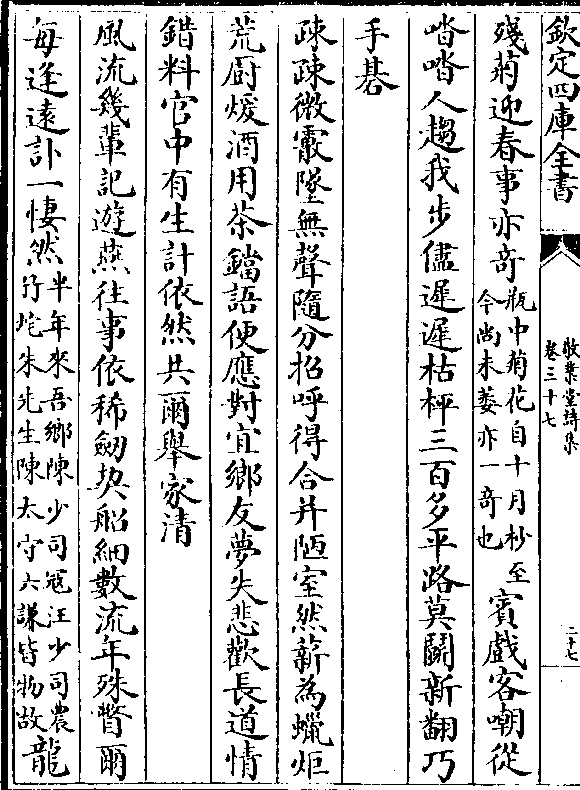 欽定四庫全書
敬業堂詩集
卷三十七
二十七
殘菊迎春事亦奇瓶中菊花自十月杪至今尚未萎亦一奇也賓戲客嘲從
喈喈人趨我步儘遲遲枯枰三百多平路莫鬭新翻巧
手碁
疎疎微霰墜無聲隨分招呼得合并陋室然薪為蠟炬
荒厨煖酒用茶鐺語便應對宜鄉友夢失悲歡長道情
錯料官中有生計依然共爾舉家清
風流幾輩記遊燕往事依稀劒契船細數流年殊瞥爾
每逢遠訃一悽然半年來吾鄉陳少司寇汪少司農竹垞朱先生陳太守六謙皆物故龍